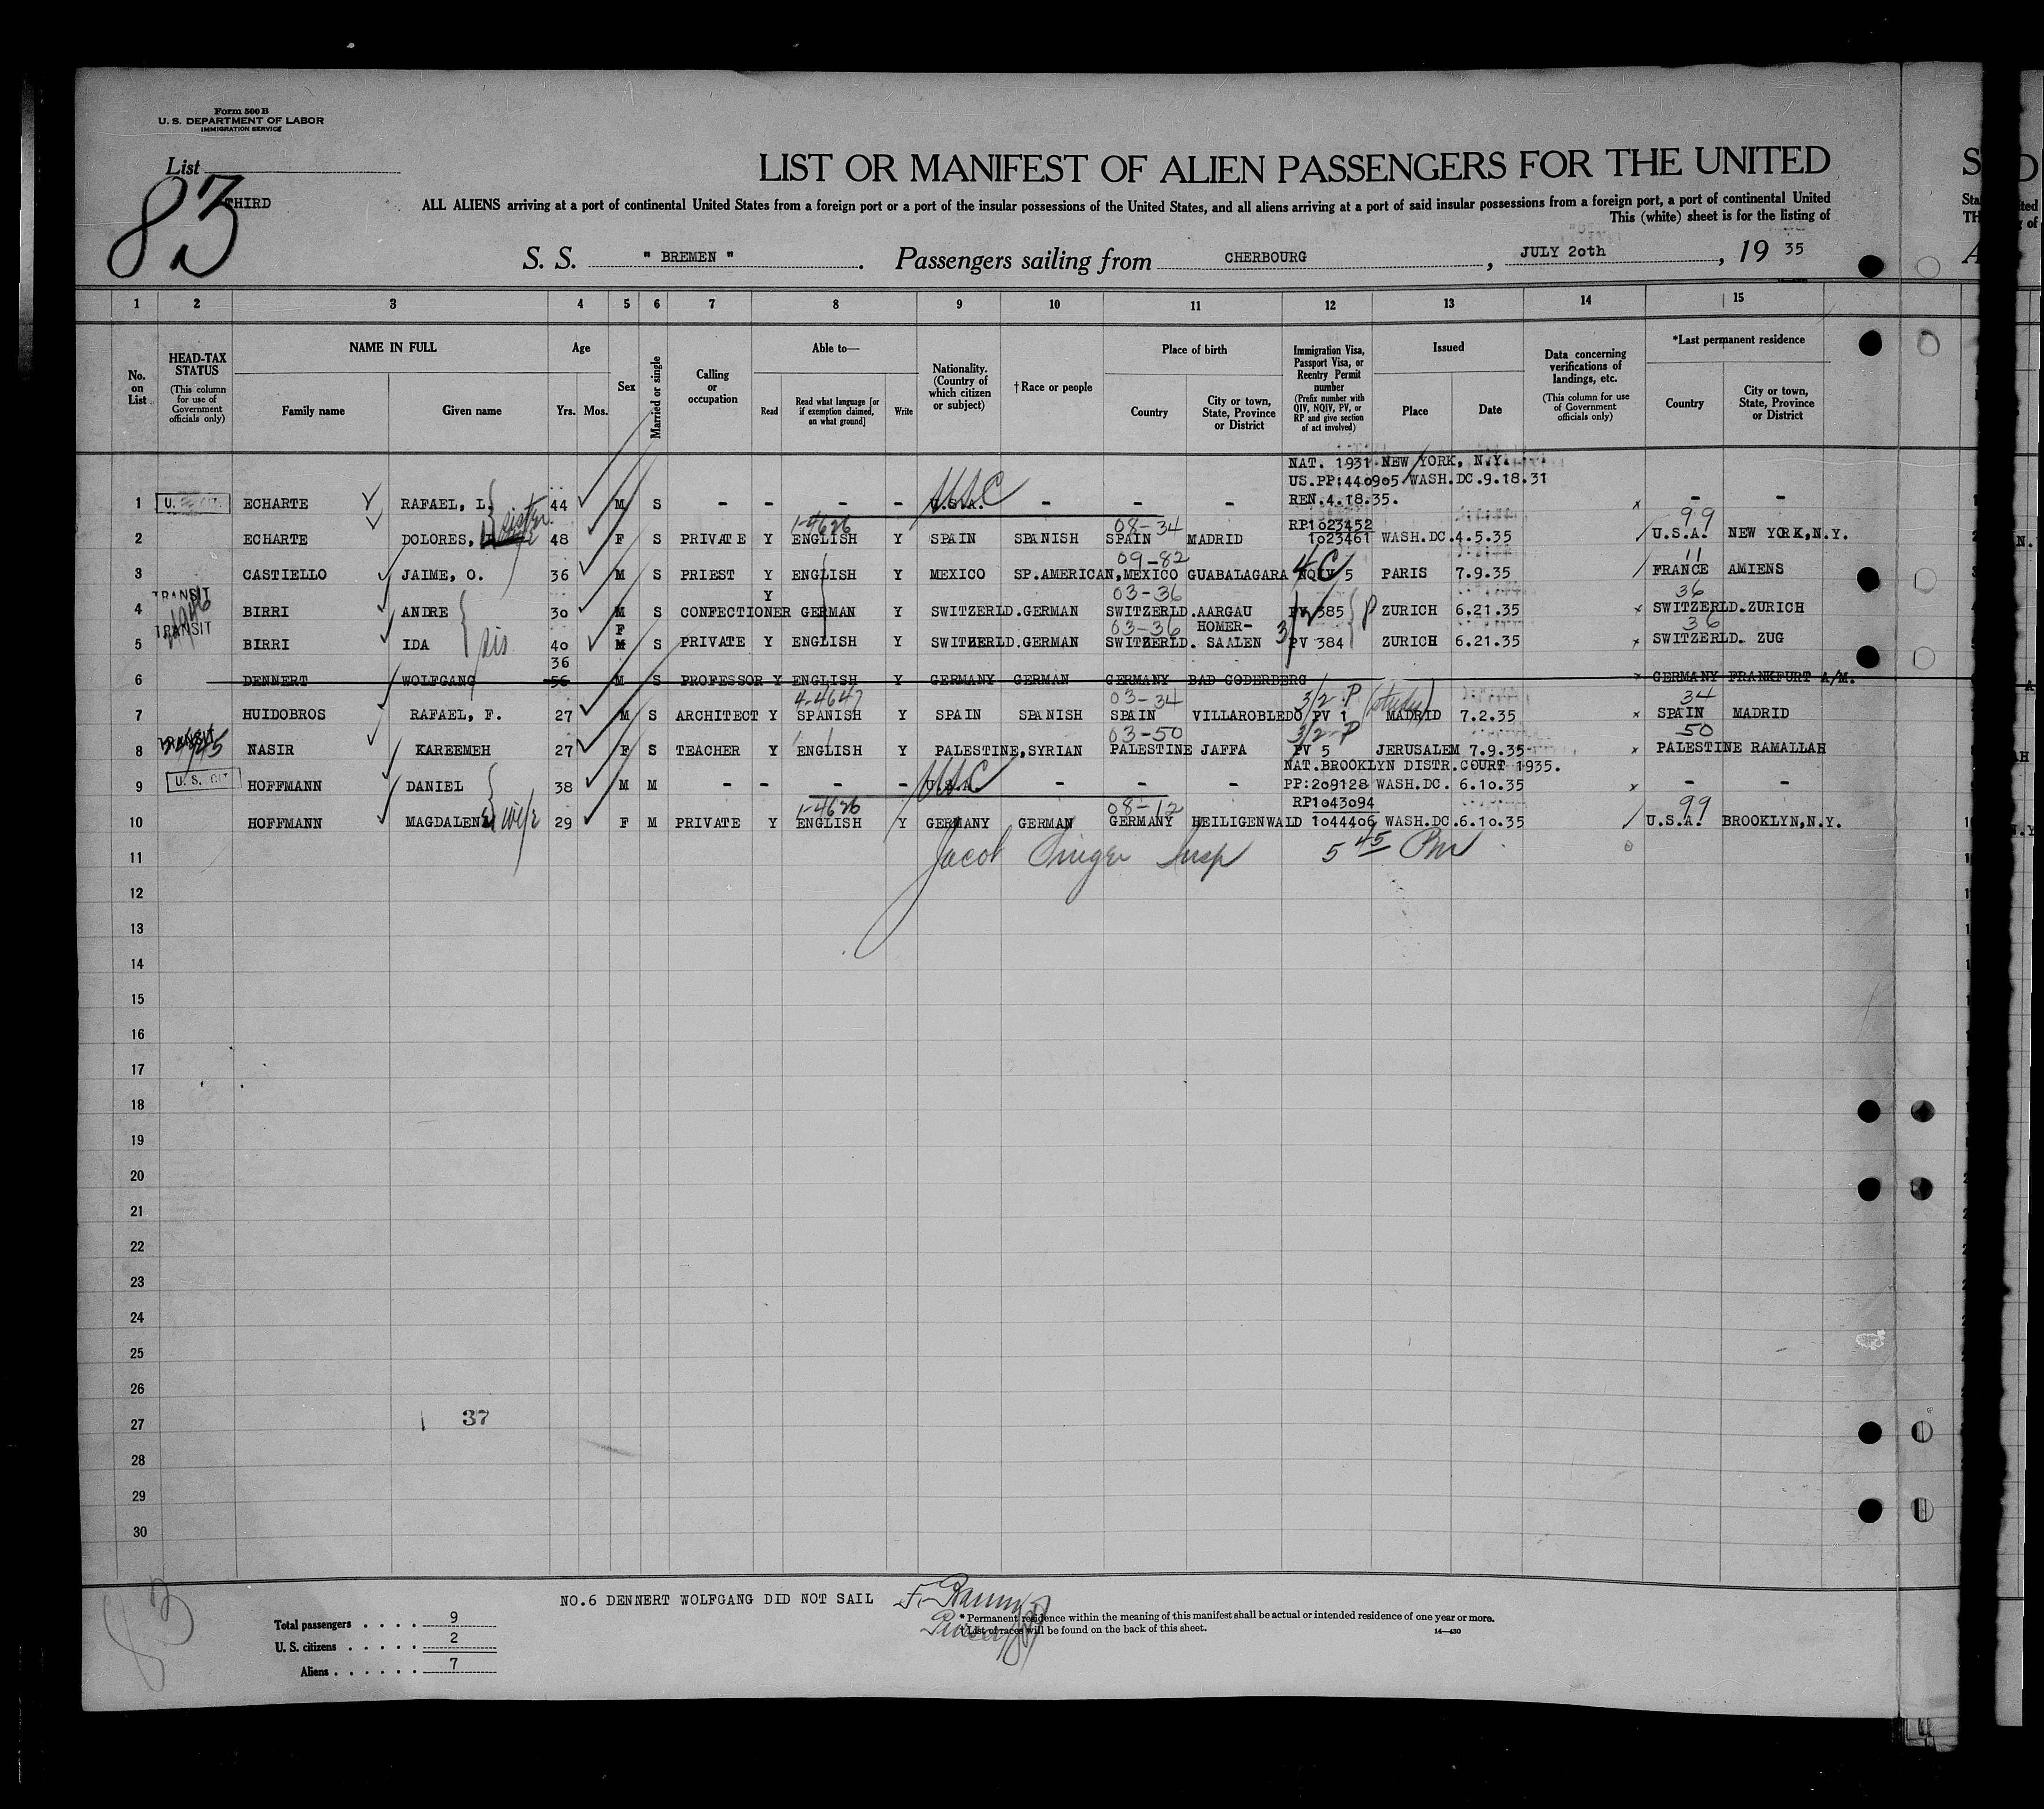 Form 500 B
U. S. DEPARTMENT OF LABOR
IMMIGRATION SERVICE
List
83
THIRD
LIST OR MANIFEST OF ALIEN PASSENGERS FOR THE UNITED
ALL ALIENS arriving at a port of continental United States from a foreign port or a port of the insular possessions of the United States, and all aliens arriving at a port of said insular possessions from a foreign port, a port of continental United
This (white) sheet is for the listing of
S. S. " BREMEN ". Passengers sailing from CHERBOURG, JULY 20th, 19 35
1 2 3 4 5 6 7 8 9 10 11 12 13 14 15
No. on List
HEAD-TAX STATUS (This column for use of Government officials only)
NAME IN FULL
Family name Given name
Age
Yrs. Mos.
Sex
Married or single
Calling or occupation
Able to—
Read Read what language [or if exemption claimed, on what ground] Write
Nationality. (Country of which citizen or subject)
†Race or people
Place of birth
Country City or town, State, Province or District
Immigration Visa, Passport Visa, or Reentry Permit number (Prefix number with QIV, NQIV, PV, or RP and give section of act involved)
Issued
Place Date
Data concerning verifications of landings, etc. (This column for use of Government officials only)
*Last permanent residence
Country City or town, State, Province or District
NAT. 1931 NEW YORK, N.Y.
US.PP:440905 WASH.DC.9.18.31
1 U. S. CIT. ECHARTE RAFAEL, L. 44 M S - - - - U.S.A. USC - - - REN.4.18.35. x - -
sister 1-4626 08-34 RP1023452 99
2 ECHARTE DOLORES, 48 F S PRIVATE Y ENGLISH Y SPAIN SPANISH SPAIN MADRID 1023461 WASH.DC.4.5.35 U.S.A. NEW YORK,N.Y.
09-82 4C 11
3 CASTIELLO JAIME, O. 36 M S PRIEST Y ENGLISH Y MEXICO SP.AMERICAN,MEXICO GUABALAGARA NQIV 5 PARIS 7.9.35 FRANCE AMIENS
TRANSIT Y 03-36 36
4 BIRRI ANDRE 30 M S CONFECTIONER GERMAN Y SWITZERLD.GERMAN SWITZERLD.AARGAU PV 385 P ZURICH 6.21.35 x SWITZERLD.ZURICH
TRANSIT F 03-36 HOMER- 36
5 BIRRI IDA sis 40 M S PRIVATE Y ENGLISH Y SWITZERLD.GERMAN SWITZERLD. SAALEN PV 384 ZURICH 6.21.35 x SWITZERLD. ZUG
36
6 DENNERT WOLFGANG 56 M S PROFESSOR Y ENGLISH Y GERMANY GERMAN GERMANY BAD GODERBERG x GERMANY FRANKFURT A/M.
4-4647 03-34 3/2-P (study) 34
7 HUIDOBROS RAFAEL, F. 27 M S ARCHITECT Y SPANISH Y SPAIN SPANISH SPAIN VILLAROBLEDO PV 1 MADRID 7.2.35 x SPAIN MADRID
TRANSIT 03-50 3/2-P 50
8 NASIR KAREEMEH 27 F S TEACHER Y ENGLISH Y PALESTINE,SYRIAN PALESTINE JAFFA PV 5 JERUSALEM 7.9.35 x PALESTINE RAMALLAH
NAT.BROOKLYN DISTR.COURT 1935.
9 U. S. CIT. HOFFMANN DANIEL 38 M M - - - - U.S.A. USC - - - PP:209128 WASH.DC. 6.10.35 x - -
1-4626 08-12 RP1043094 99
10 HOFFMANN MAGDALENE wife 29 F M PRIVATE Y ENGLISH Y GERMANY GERMAN GERMANY HEILIGENWALD 1044406 WASH.DC.6.10.35 U.S.A. BROOKLYN,N.Y.
11 Jacob Insp 5 45 Pm
12
13
14
15
16
17
18
19
20
21
22
23
24
25
26
27 37
28
29
30
NO.6 DENNERT WOLFGANG DID NOT SAIL
83
Total passengers . . . . 9
U. S. citizens . . . . . 2
Aliens . . . . . . 7
* Permanent residence within the meaning of this manifest shall be actual or intended residence of one year or more.
† List of races will be found on the back of this sheet.
14—430